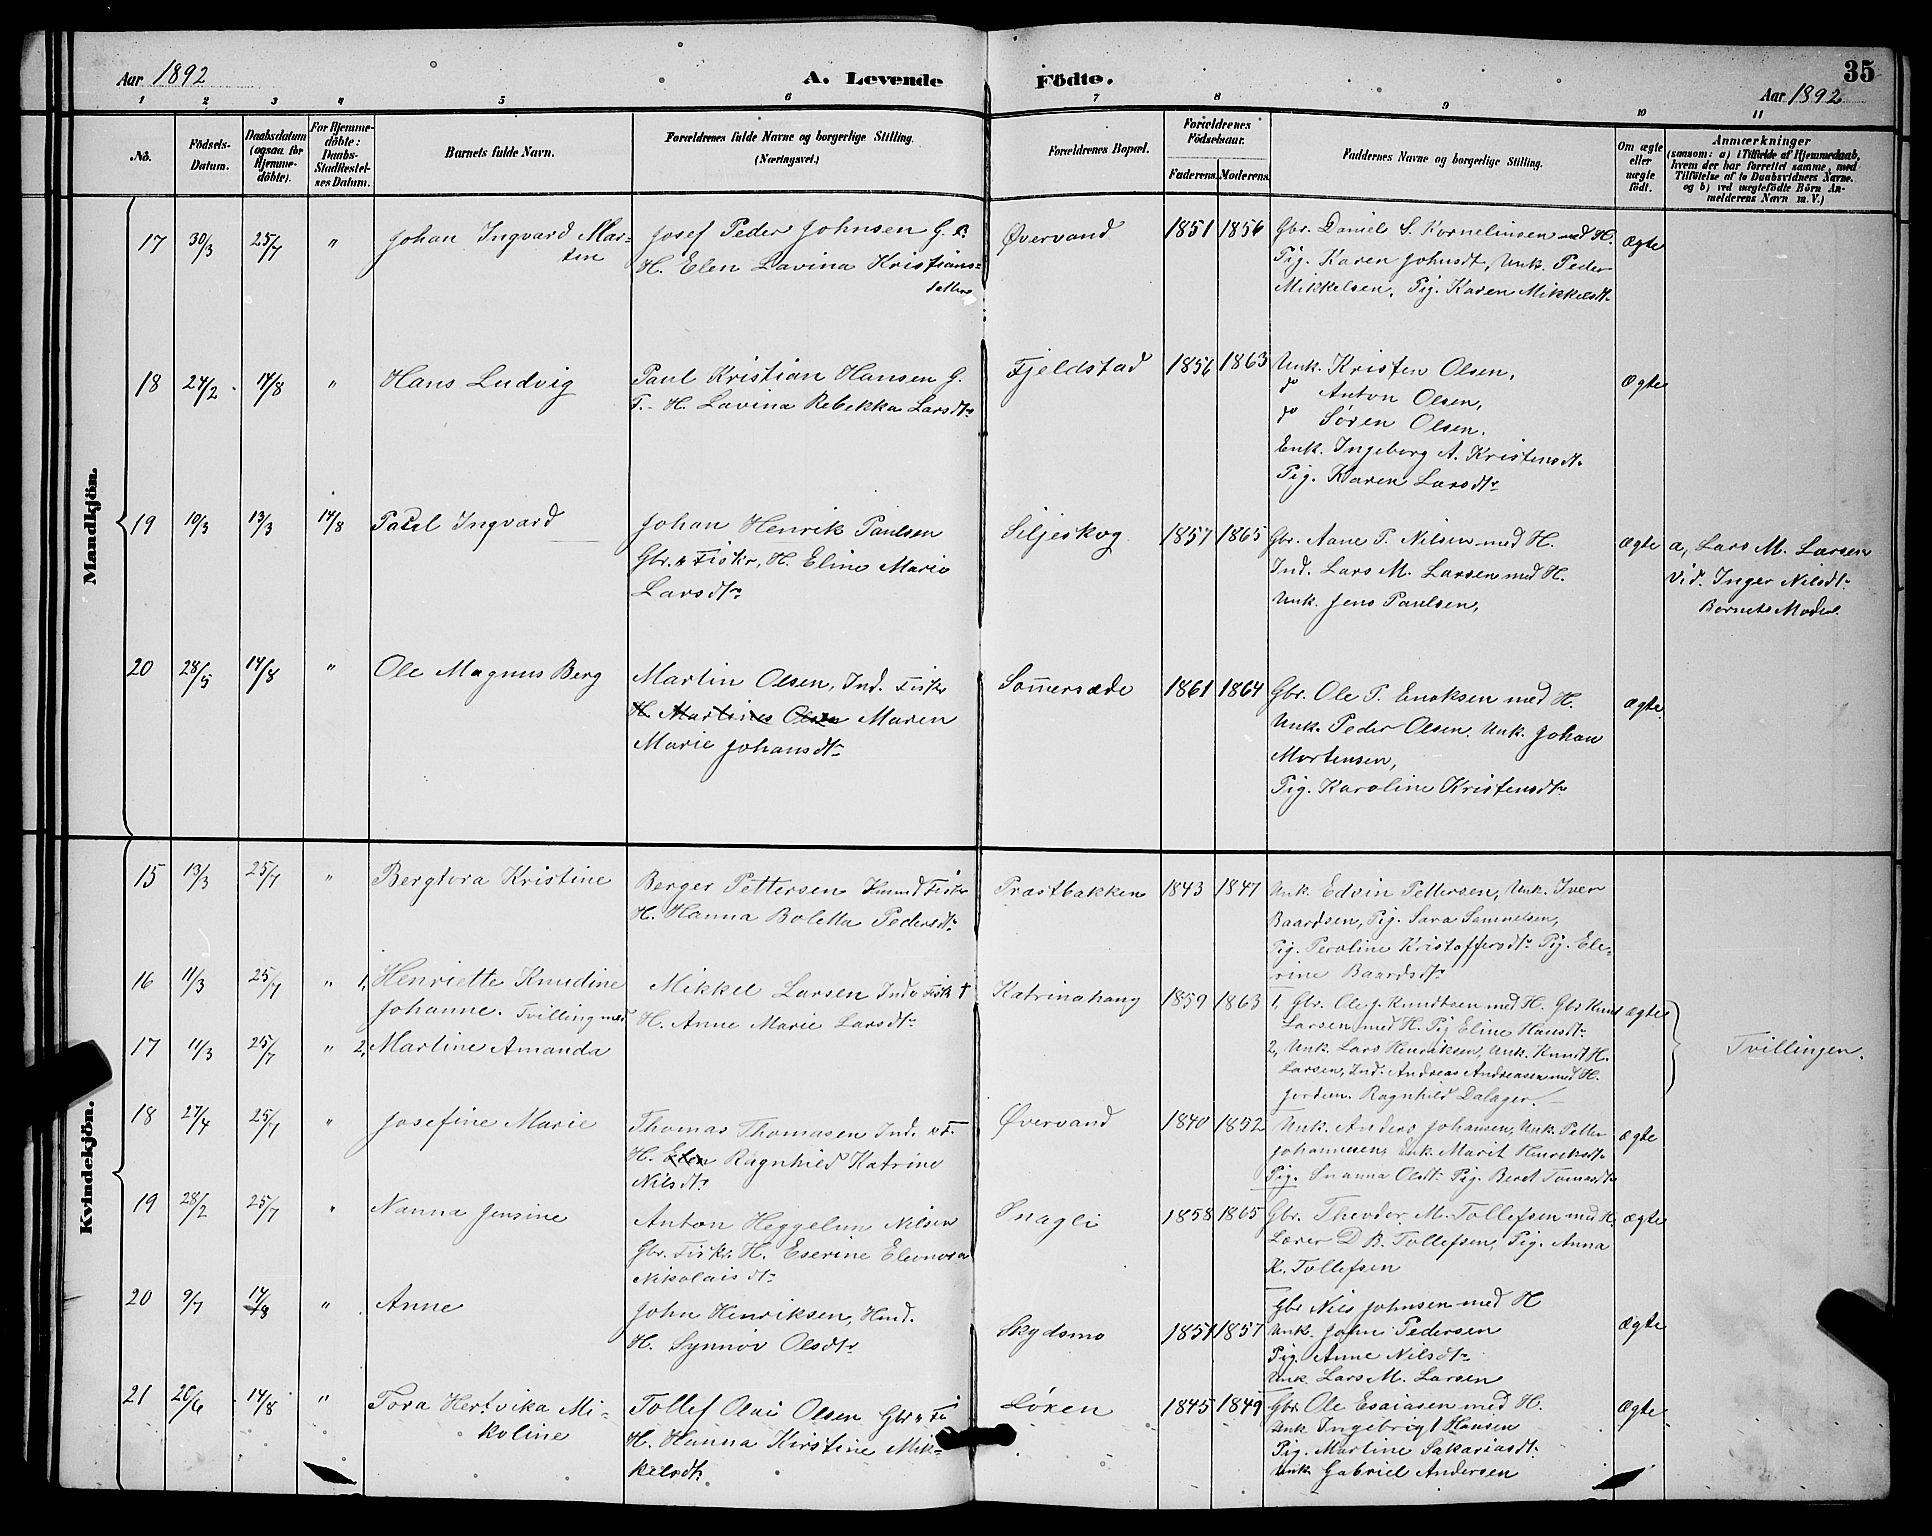 Aar 1892
A. Levende Födte.
35
Aar 1892
1 2 3 4 5 6 7 8 9 10 11
No.
Födsels-Datum.
Daabsdatum (ogsaa for Hjemme-döbte).
For Hjemme-döbte: Daabs-Stadfæstel-ses Datum.
Barnets fulde Navn.
Forældrenes fulde Navne og borgerlige Stilling. (Næringsvei.)
Forældrenes Bopæl.
Forældrenes Födselsaar.
Faderens. Moderens.
Faddernes Navne og borgerlige Stilling.
Om ægte eller uægte födt.
Anmærkninger
(saasom: a) i Tilfælde af Hjemmedaab, hvem der har forrettet samme, med Tilföielse af to Daabsvidners Navne. og b) ved uægtefödte Börn An-melderens Navn m. V.)
Mandkjön.
17 30/3 25/7 " Johan Ingvard Mar-
ten
Josef Peder Johnsen G. B.
H. Elen Lavina Kristians-
datter
Øvervand 1851 1856
Gbr. Daniel S. Korneliusen med H.
Pig. Karen Johnsdt, Unk. Peder
Mikkelsen, Pig. Karen Mikkelsdt.
Ægte
18 24/2 14/8 " Hans Ludvig
Paul Kristian Hansen G.
F. H. Lavina Rebekka Larsdtr
Fjeldstad 1856 1863
Unk. Kristen Olsen,
do Anton Olsen,
do Søren Olsen.
Enk. Ingeborg A. Kristensdt.
Pig. Karen Larsdtr
Ægte
19 10/3 13/3 14/8 Paul Ingvard
Johan Henrik Paulsen
Gbr. & Fiskr, H. Eline Marie
Larsdtr
Siljeskog 1857 1865
Gbr. Aane P. Nilsen med H.
Ind. Lars M. Larsen med H.
Unk. Jens Paulsen,
Ægte
a, Lars M. Larsen
Vid. Inger Nilsdt.
Barnets Moder.
20 28/5 14/8 " Ole Magnus Berg
Martin Olsen, Ind. Fiskr
H. Martines Olsen Maren
Marie Johansdtr
Somersæde 1861 1864
Gbr. Ole P. Enoksen med H.
Unk. Peder Olsen, Unk. Johan
Mortensen,
Pig. Karoline Kristensdtr
Ægte
Kvindekjön.
15 13/3 25/7 " Bergtora Kristine
Berger Pettersen Husmd Fiskr
H. Hanna Boletta Pedersdtr
Præstbakken 1843 1847
Unk. Edvin Pettersen, Unk. Iver
Baardsen, Pig. Sara Samuelsen,
Pig. Peroline Kristoffersdtr Pig. Ele-
rine Baardsdtr
16 11/3 25/7 " 1, Henriette Knudine
Johanne. Tvilling med
Mikkel Larsen Ind. Fisk †
H. Anne Marie Larsdtr
Katrinahaug 1859 1863
1, Gbr. Ole J. Knudtsen med H. Gbr Knut
Larsen med H. Pig Eline Hansdtr
Ægte
17 11/3 25/7 " 2, Martine Amanda
2, Unk. Lars Henriksen, Unk. Knud H.
Larsen, Ind. Andreas Andreasen med H.
Jordem. Ragnhild Dalager.
Tvillinger.
18 27/4 25/7 " Josefine Marie
Thomas Thomasen Ind. & F.
H. Elen Ragnhild Katrine
Nilsdtr
Øvervand 1840 1852
Unk. Anders Johansen, Unk. Petter
Johannesen, Enk. Marit Hinriksdtr
Pig. Susanna Olsdt Pig. Beret Tomasdtr
Ægte
19 28/2 25/7 " Nanna Jensine
Anton Heggelun Nilsen
Gbr. Fiskr. H. Eserine Eleonora
Nikolaisdtr
Snagli 1858 1865
Gbr. Theodor M. Tollefsen med H.
Lærer D B. Tollefsen, Pig. Anna
K. Tollefsen
Ægte
20 9/7 14/8 " Anne
John Henriksen, Husd.
H. Synnöv Olsdtr
Skydsmo 1851 1857
Gbr Nils Johnsen med H
Unk. John Pedersen
Pig. Anne Nilsdtr
Unk. Lars M. Larsen
Ægte
21 26/6 14/8 " Tora Hertvika Mi-
koline
Tollef Olai Olsen Gbr & Fi
H. Hanna Kirstine Mik-
kelsdtr
Löken 1845 1849
Gbr. Ole Esaiasen med H.
Unk Ingebrigt Hansen
Pig. Martine Sakariasdt.
Unk. Gabriel Andersen
Ægte